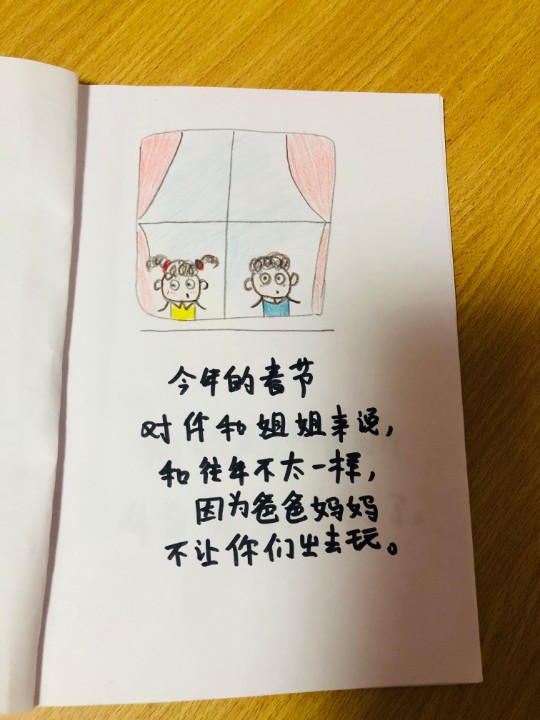 今年的春节
对你和姐姐来说，
和往年不太一样，
因为爸爸妈妈
不让你们出去玩。